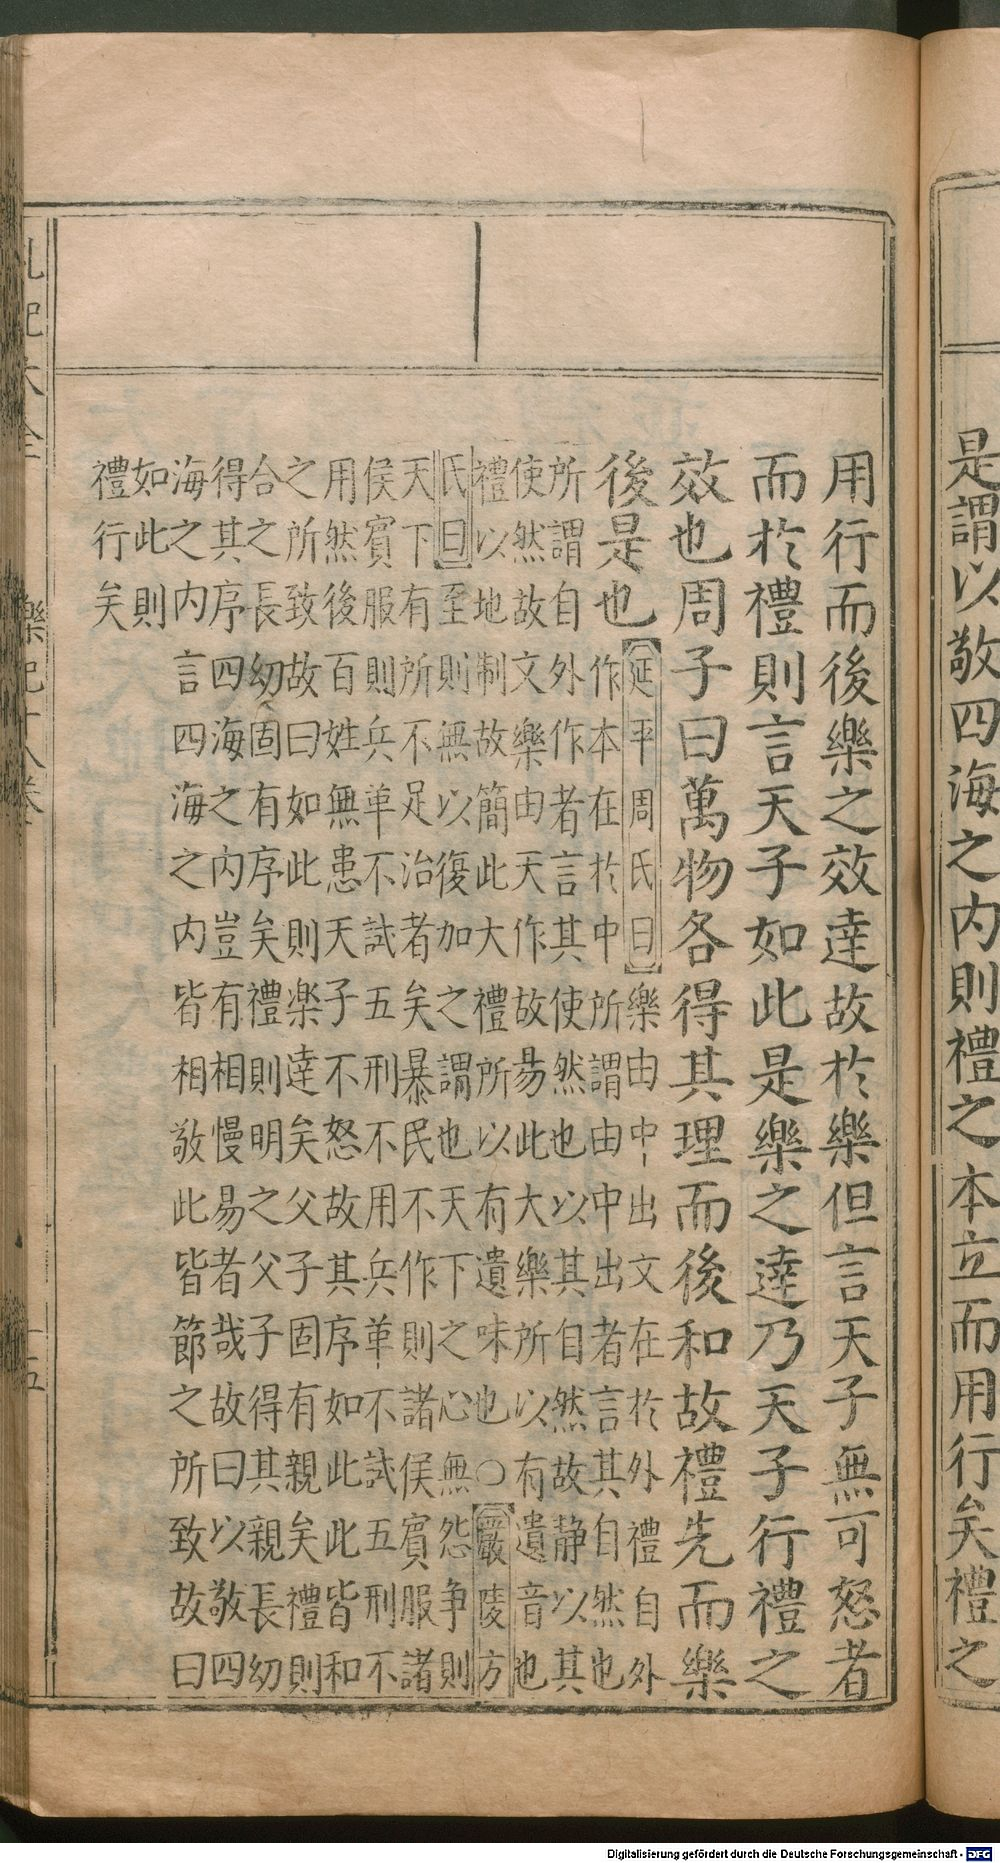 是謂以敬四海之内則禮之本立而用行矣禮之
用行而後樂之效達故於樂但言天子無可怒者
而於禮則言天子如此是樂之達乃天子行禮之
效也周子曰萬物各得其理而後和故禮先而樂
後是也
延平周氏曰樂由中出文在於外禮自外
作本在於中所謂由中出者言其自然也
所謂自外作者言其使然也以其自然故静以其
使然故文樂由天作故易此大樂所以有遺音也
禮以地制故簡此大禮所以有遺味也○嚴陵方
氏曰至則無以復加之謂也天下之心無怨争則
天下有所不足治者矣暴民不作則諸侯賓服諸
侯賓服則兵革不試五刑不用兵革不試五刑不
用然後百姓無患天子不怒故其序如此此皆和
之所致故曰如此則楽達矣父子固有親矣禮則
合之長幼固有序矣禮則明之父子得其親長幼
得其序四海之内豈有相慢易者哉故曰以敬四
海之内言四海之内皆相敬此皆節之所致故曰
如此則
禮行矣
禮記大全
樂記十八卷
十五
Digitalisierung gefördert durch die Deutsche Forschungsgemeinschaft - DFG